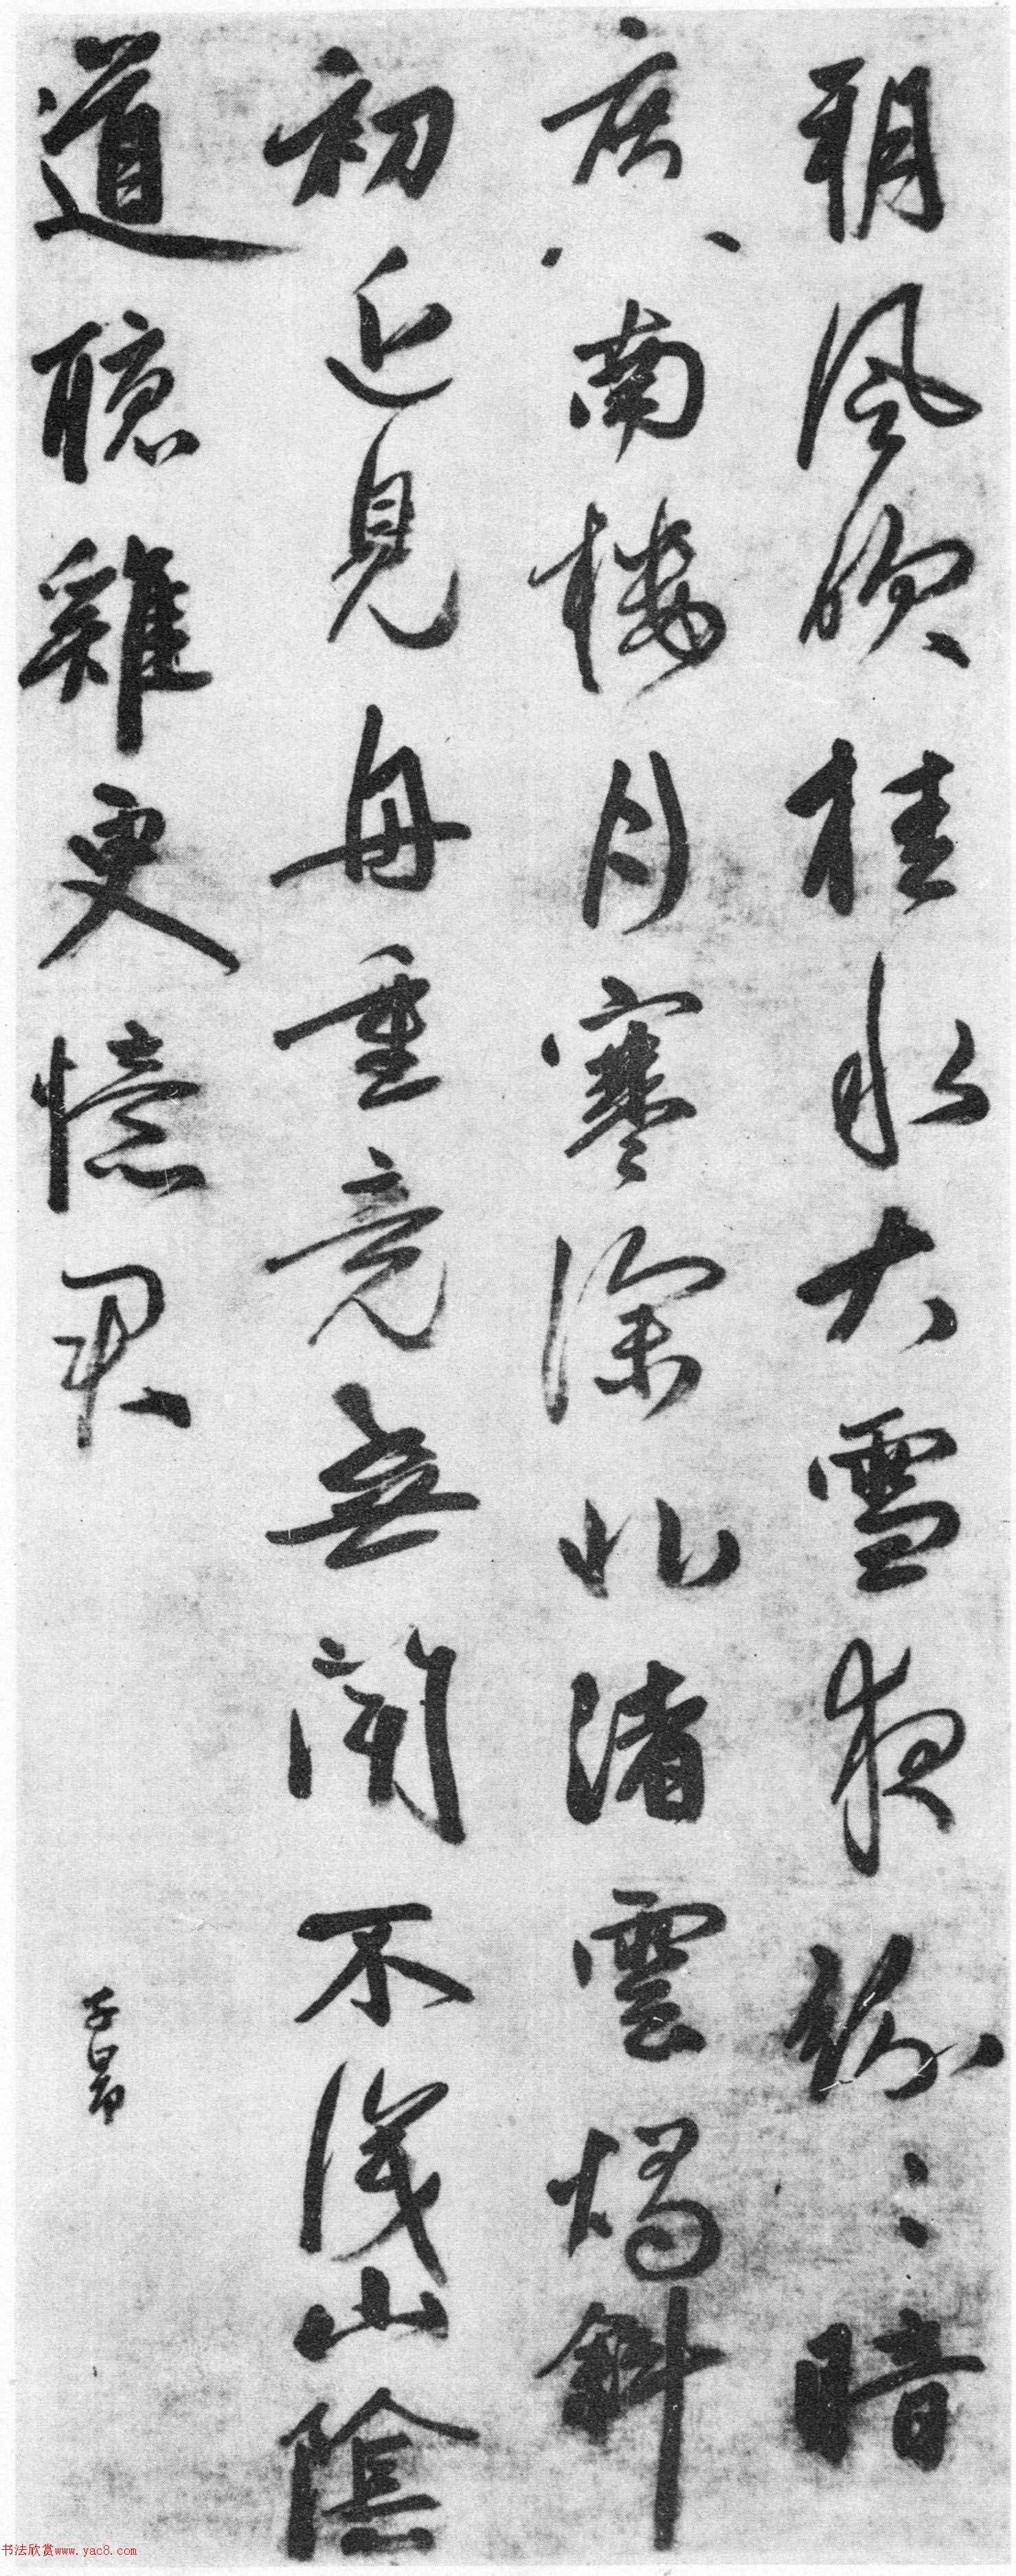 朔風吹桂水大雪夜紛〻暗
度南樓月寒深北渚雲燭斜
初近見舟重竟無聞不識山陰
道聽雞更憶君
子昂
书法欣赏www.yac8.com